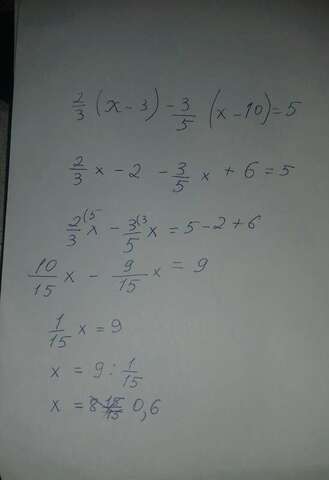 2/3 (x - 3) - 3/5 (x - 10) = 5
2/3 x - 2 - 3/5 x + 6 = 5
2/3 (5 x - 3/5 (3 x = 5 - 2 + 6
10/15 x - 9/15 x = 9
1/15 x = 9
x = 9 : 1/15
x = 0,6